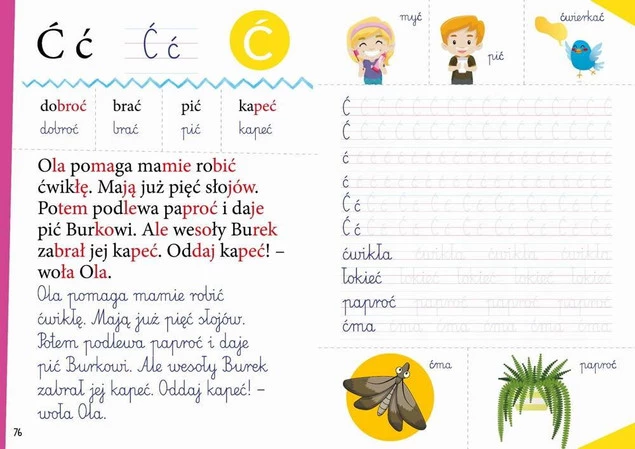 Ć ć Ć ć Ć
dobroć brać pić kapeć
dobroć brać pić kapeć
Ola pomaga mamie robić
ćwikłę. Mają już pięć słojów.
Potem podlewa paproć i daje
pić Burkowi. Ale wesoły Burek
zabrał jej kapeć. Oddaj kapeć! –
woła Ola.
Ola pomaga mamie robić
ćwikłę. Mają już pięć słojów.
Potem podlewa paproć i daje
pić Burkowi. Ale wesoły Burek
zabrał jej kapeć. Oddaj kapeć! –
woła Ola.
76
myć
pić
ćwierkać
Ć Ć Ć Ć Ć Ć Ć Ć Ć Ć Ć Ć
Ć Ć Ć Ć Ć Ć Ć Ć Ć Ć Ć Ć
ć ć ć ć ć ć ć ć ć ć ć ć
ć ć ć ć ć ć ć ć ć ć ć ć
Ć ć
Ć ć
ćwikła ćwikła ćwikła ćwikła
łokieć łokieć łokieć łokieć
paproć paproć paproć paproć
ćma ćma ćma ćma ćma
ćma
paproć